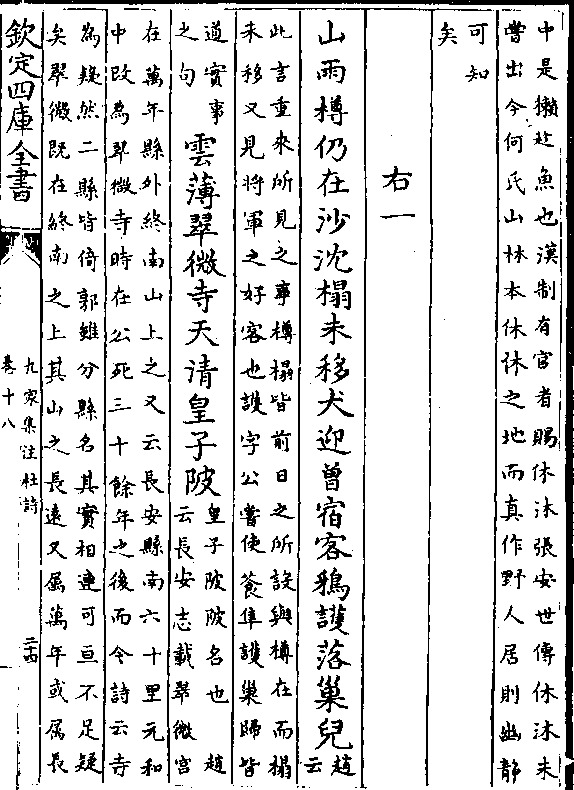 中是獺趂魚也漢制有官者賜休沐張安世傳休沐未
甞出今何氏山林本休休之地而真作野人居則幽靜
可知
矣
右一
山雨樽仍在沙沈榻未移犬迎曾宿客鵶護落巢兒趙
云
此言重來所見之事樽榻皆前日之所設與樽在而榻
未移又見將軍之好客也護字公甞使養隼護巢歸皆
道實事
之句
雲薄翠微寺天清皇子陂
皇子陂陂名也 趙
云長安志載翠微宮
在萬年縣外終南山上之又云長安縣南六十里元和
中改為翠微寺時在公死三十餘年之後而今詩云寺
為疑然二縣皆倚郭雖分縣名其實相連可亘不足疑
矣翠微既在終南之上其山之長遠又屬萬年或屬長
欽定四庫全書
九家集注杜詩
卷十八
二十四